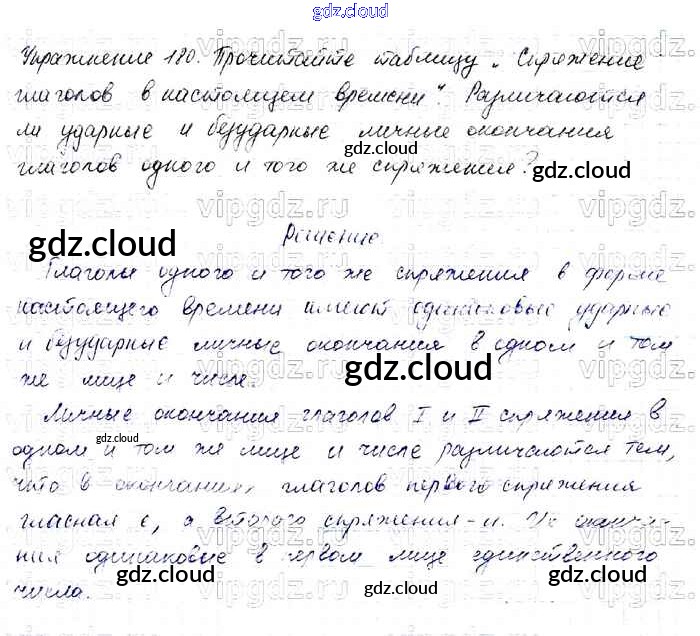 gdz.cloud
Упражнение 180. Прочитайте таблицу „Спряжение
глаголов в настоящем времени". Различаются
ли ударные и безударные личные окончания
глаголов одного и того же спряжения?
gdz.cloud
gdz.cloud
Решение.
gdz.cloud
Глаголы одного и того же спряжения в форме
настоящего времени имеют одинаковые ударные
и безударные личные окончания в одном и том
же лице и числе.
gdz.cloud
Личные окончания глаголов I и II спряжения в
одном и том же лице и числе различаются тем,
gdz.cloud
что в окончаниях глаголов первого спряжения
гласная е, а второго спряжения - и. Но оконча-
ния одинаковые в первом лице единственного
числа.
gdz.cloud
gdz.cloud
gdz.cloud